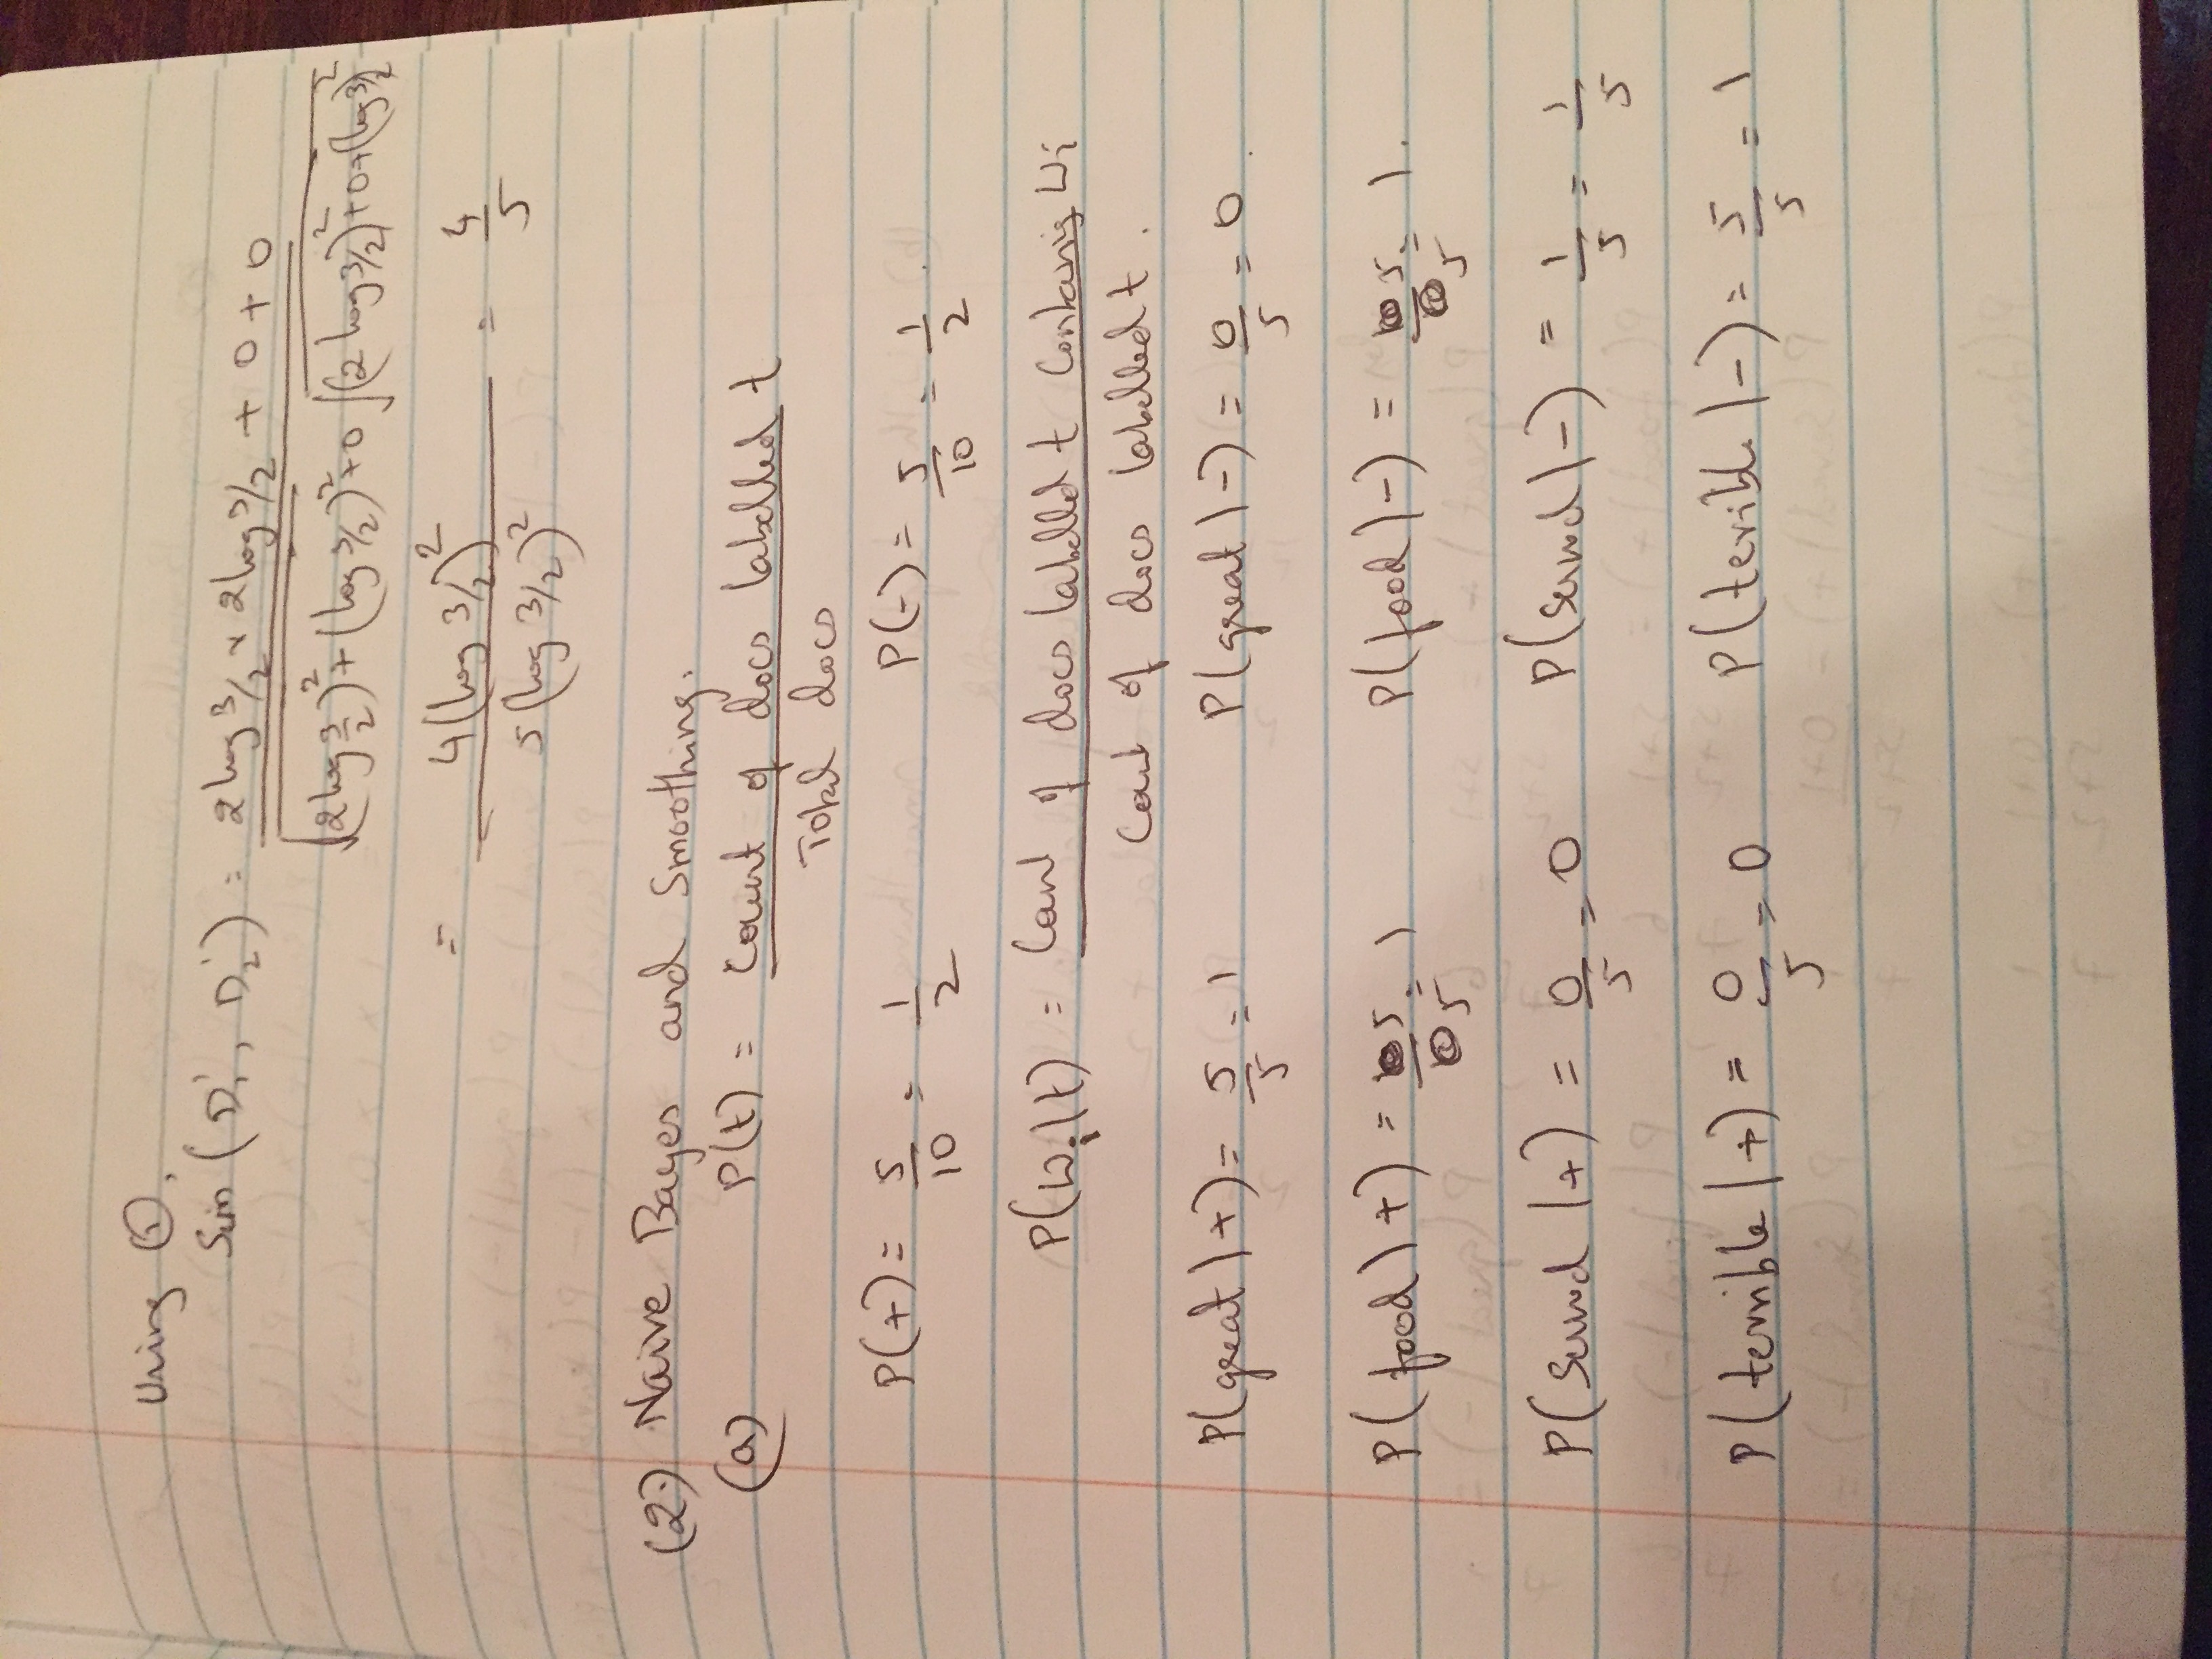 Using ①,
Sim (D₁', D₂') = 2 log 3/2 x 2 log 3/2 + 0 + 0
√(2 log 3/2)² + (log 3/2)² + 0 √(2 log 3/2)² + 0 + (log 3/2)²
= 4 (log 3/2)² = 4
5 (log 3/2)² 5
(2.) Naive Bayes and Smoothing.
(a) P(t) = Count of docs labelled t
Total docs
P(+) = 5/10 = 1/2 P(-) = 5/10 = 1/2 .
P(Wi|t) = Count of docs labelled t containing Wi
Count of docs labelled t .
P(great | +) = 5/5 = 1 P(great | -) = 0/5 = 0 .
P(food | +) = 5/5 = 1 P(food | -) = 5/5 = 1 .
P(Served | +) = 0/5 = 0 P(served | -) = 1/5 = 1/5
P(terrible | +) = 0/5 = 0 P(terible | -) = 5/5 = 1